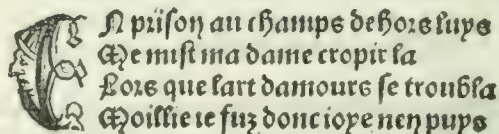 EN prison au champs dehors luys
Me mist ma dame cropir la
Lors que lart damours se troubla
Moillie ie fuz dont ioye nen puys